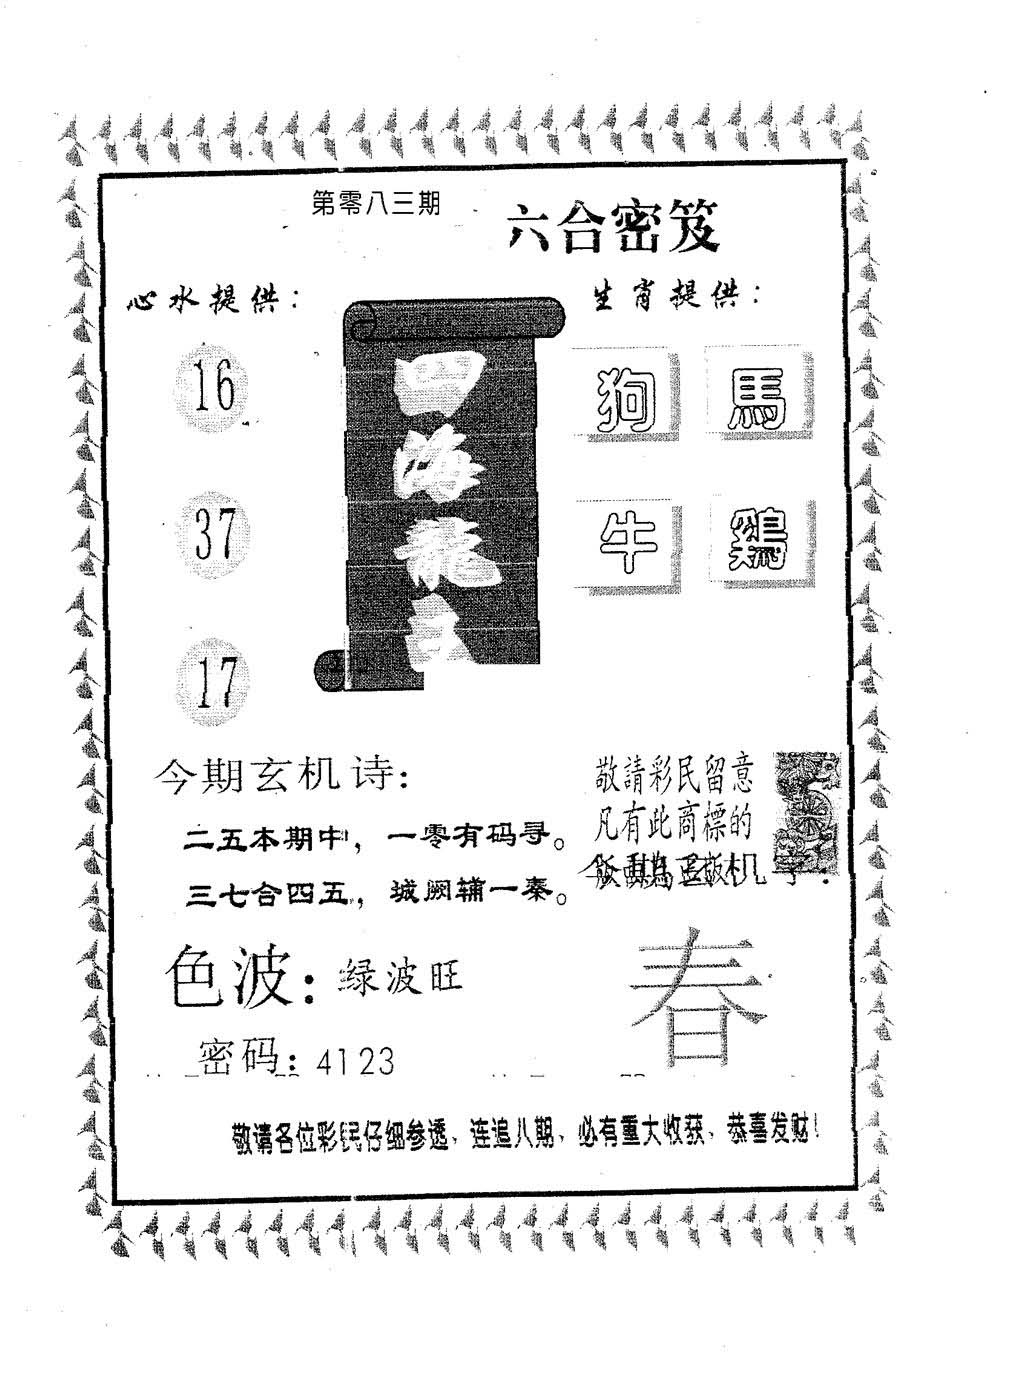 第零八三期
六合密笈
心水提供：
生肖提供：
16
37
17
四海龍
狗 馬
牛 鷄
今期玄机诗：
二五本期中，一零有码寻。
三七合四五，城阙辅一秦。
敬請彩民留意
凡有此商標的
色波：绿波旺
春
密码：4123
敬请各位彩民仔细参透、连追八期、必有重大收获、恭喜发财！